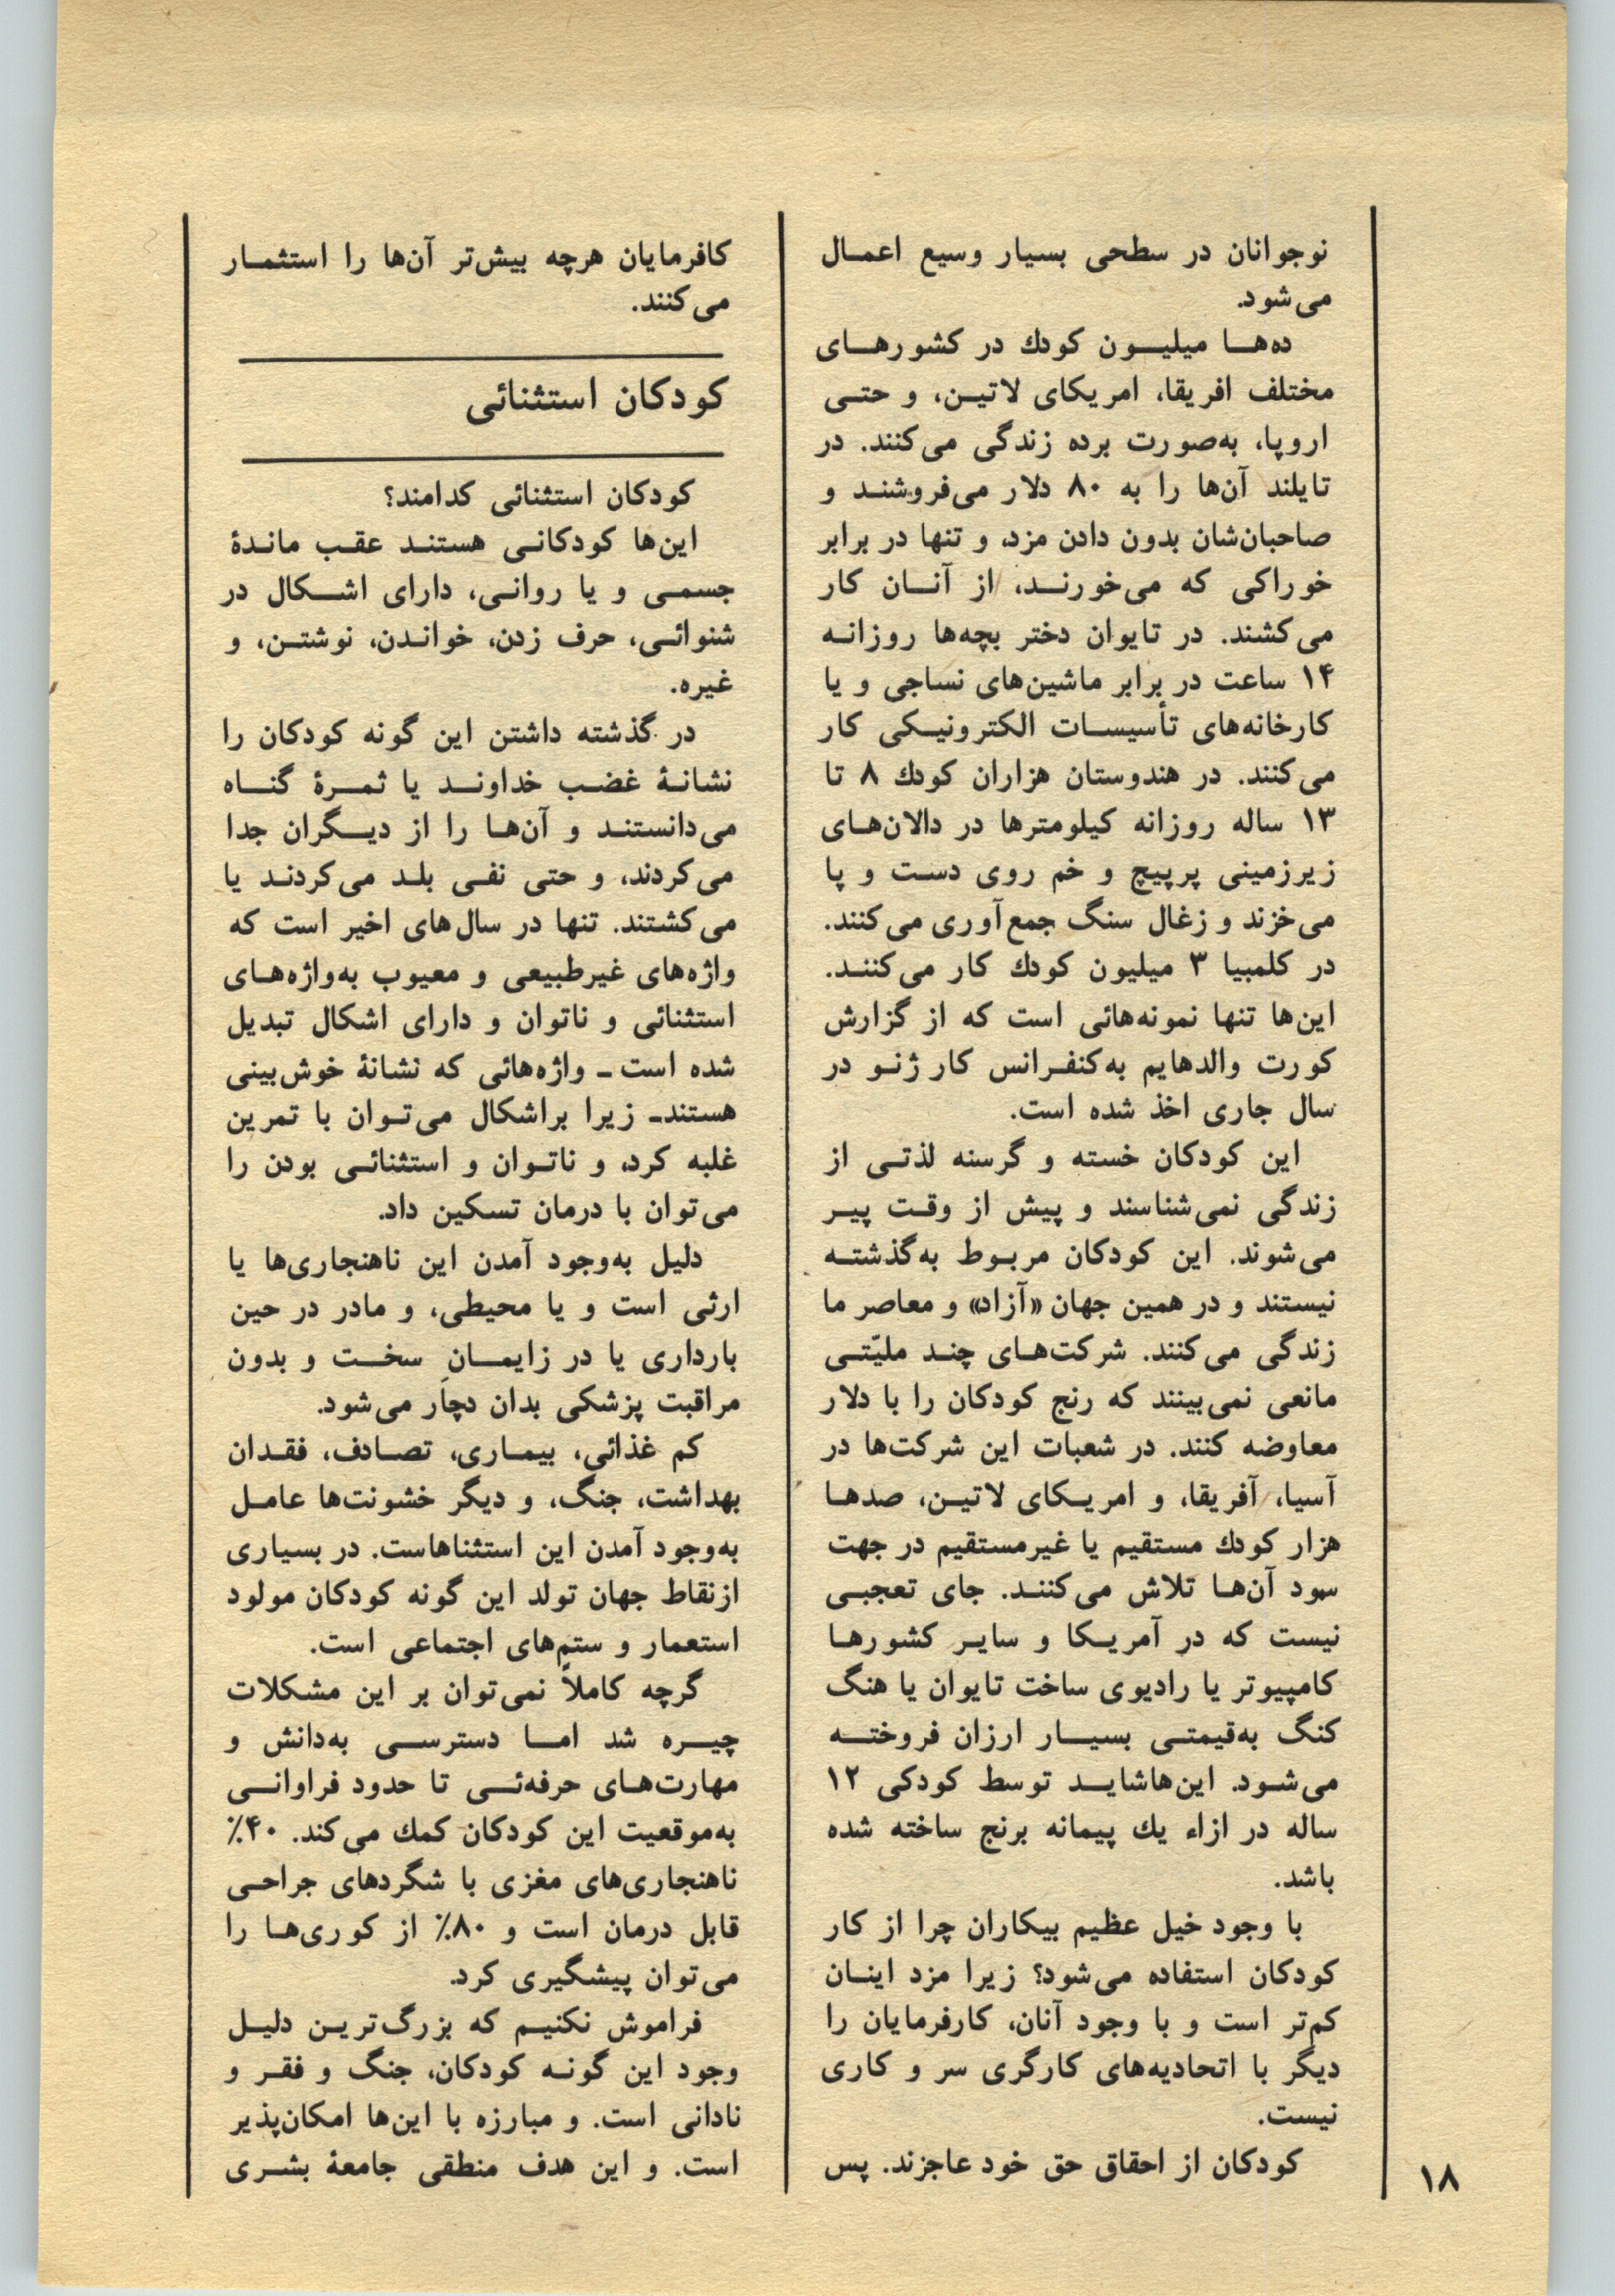 نوجوانان در سطحی بسیار وسیع اعمال
می‌شود.
ده‌ها میلیون کودك در کشورهای
مختلف افریقا، امریکای لاتین، و حتی
اروپا، به‌صورت برده زندگی می‌کنند. در
تایلند آن‌ها را به ۸۰ دلار می‌فروشند و
صاحبان‌شان بدون دادن مزد، و تنها در برابر
خوراکی که می‌خورند، از آنان کار
می‌کشند. در تایوان دختر بچه‌ها روزانه
۱۴ ساعت در برابر ماشین‌های نساجی و یا
کارخانه‌های تأسیسات الکترونیکی کار
می‌کنند. در هندوستان هزاران کودك ۸ تا
۱۳ ساله روزانه کیلومترها در دالان‌های
زیرزمینی پرپیچ و خم روی دست و پا
می‌خزند و زغال سنگ جمع‌آوری می‌کنند.
در کلمبیا ۳ میلیون کودك کار می‌کنند.
این‌ها تنها نمونه‌هائی است که از گزارش
کورت والدهایم به‌کنفرانس کار ژنو در
سال جاری اخذ شده است.
این کودکان خسته و گرسنه لذتی از
زندگی نمی‌شناسند و پیش از وقت پیر
می‌شوند. این کودکان مربوط به‌گذشته
نیستند و در همین جهان «آزاد» و معاصر ما
زندگی می‌کنند. شرکت‌های چند ملیّتی
مانعی نمی‌بینند که رنج کودکان را با دلار
معاوضه کنند. در شعبات این شرکت‌ها در
آسیا، آفریقا، و امریکای لاتین، صدها
هزار کودك مستقیم یا غیرمستقیم در جهت
سود آن‌ها تلاش می‌کنند. جای تعجبی
نیست که در آمریکا و سایر کشورها
کامپیوتر یا رادیوی ساخت تایوان یا هنگ
کنگ به‌قیمتی بسیار ارزان فروخته
می‌شود. این‌هاشاید توسط کودکی ۱۲
ساله در ازاء یك پیمانه برنج ساخته شده
باشد.
با وجود خیل عظیم بیکاران چرا از کار
کودکان استفاده می‌شود؟ زیرا مزد اینان
کم‌تر است و با وجود آنان، کارفرمایان را
دیگر با اتحادیه‌های کارگری سر و کاری
نیست.
کودکان از احقاق حق خود عاجزند. پس
کافرمایان هرچه بیش‌تر آن‌ها را استثمار
می‌کنند.
کودکان استثنائی
کودکان استثنائی کدامند؟
این‌ها کودکانی هستند عقب ماندهٔ
جسمی و یا روانی، دارای اشکال در
شنوائی، حرف زدن، خواندن، نوشتن، و
غیره.
در گذشته داشتن این گونه کودکان را
نشانهٔ غضب خداوند یا ثمرهٔ گناه
می‌دانستند و آن‌ها را از دیگران جدا
می‌کردند، و حتی نفی بلد می‌کردند یا
می‌کشتند. تنها در سال‌های اخیر است که
واژه‌های غیرطبیعی و معیوب به‌واژه‌های
استثنائی و ناتوان و دارای اشکال تبدیل
شده است ـ واژه‌هائی که نشانهٔ خوش‌بینی
هستندـ زیرا براشکال می‌توان با تمرین
غلبه کرد، و ناتوان و استثنائی بودن را
می‌توان با درمان تسکین داد.
دلیل به‌وجود آمدن این ناهنجاری‌ها یا
ارثی است و یا محیطی، و مادر در حین
بارداری یا در زایمانِ سخت و بدون
مراقبت پزشکی بدان دچار می‌شود.
کم غذائی، بیماری، تصادف، فقدان
بهداشت، جنگ، و دیگر خشونت‌ها عامل
به‌وجود آمدن این استثناهاست. در بسیاری
ازنقاط جهان تولد این گونه کودکان مولود
استعمار و ستم‌های اجتماعی است.
گرچه کاملاً نمی‌توان بر این مشکلات
چیره شد اما دسترسی به‌دانش و
مهارت‌های حرفه‌ئی تا حدود فراوانی
به‌موقعیت این کودکان کمك می‌کند. ۴۰٪
ناهنجاری‌های مغزی با شگردهای جراحی
قابل درمان است و ۸۰٪ از کوری‌ها را
می‌توان پیشگیری کرد.
فراموش نکنیم که بزرگ‌ترین دلیل
وجود این گونه کودکان، جنگ و فقر و
نادانی است. و مبارزه با این‌ها امکان‌پذیر
است. و این هدف منطقی جامعهٔ بشری
۱۸